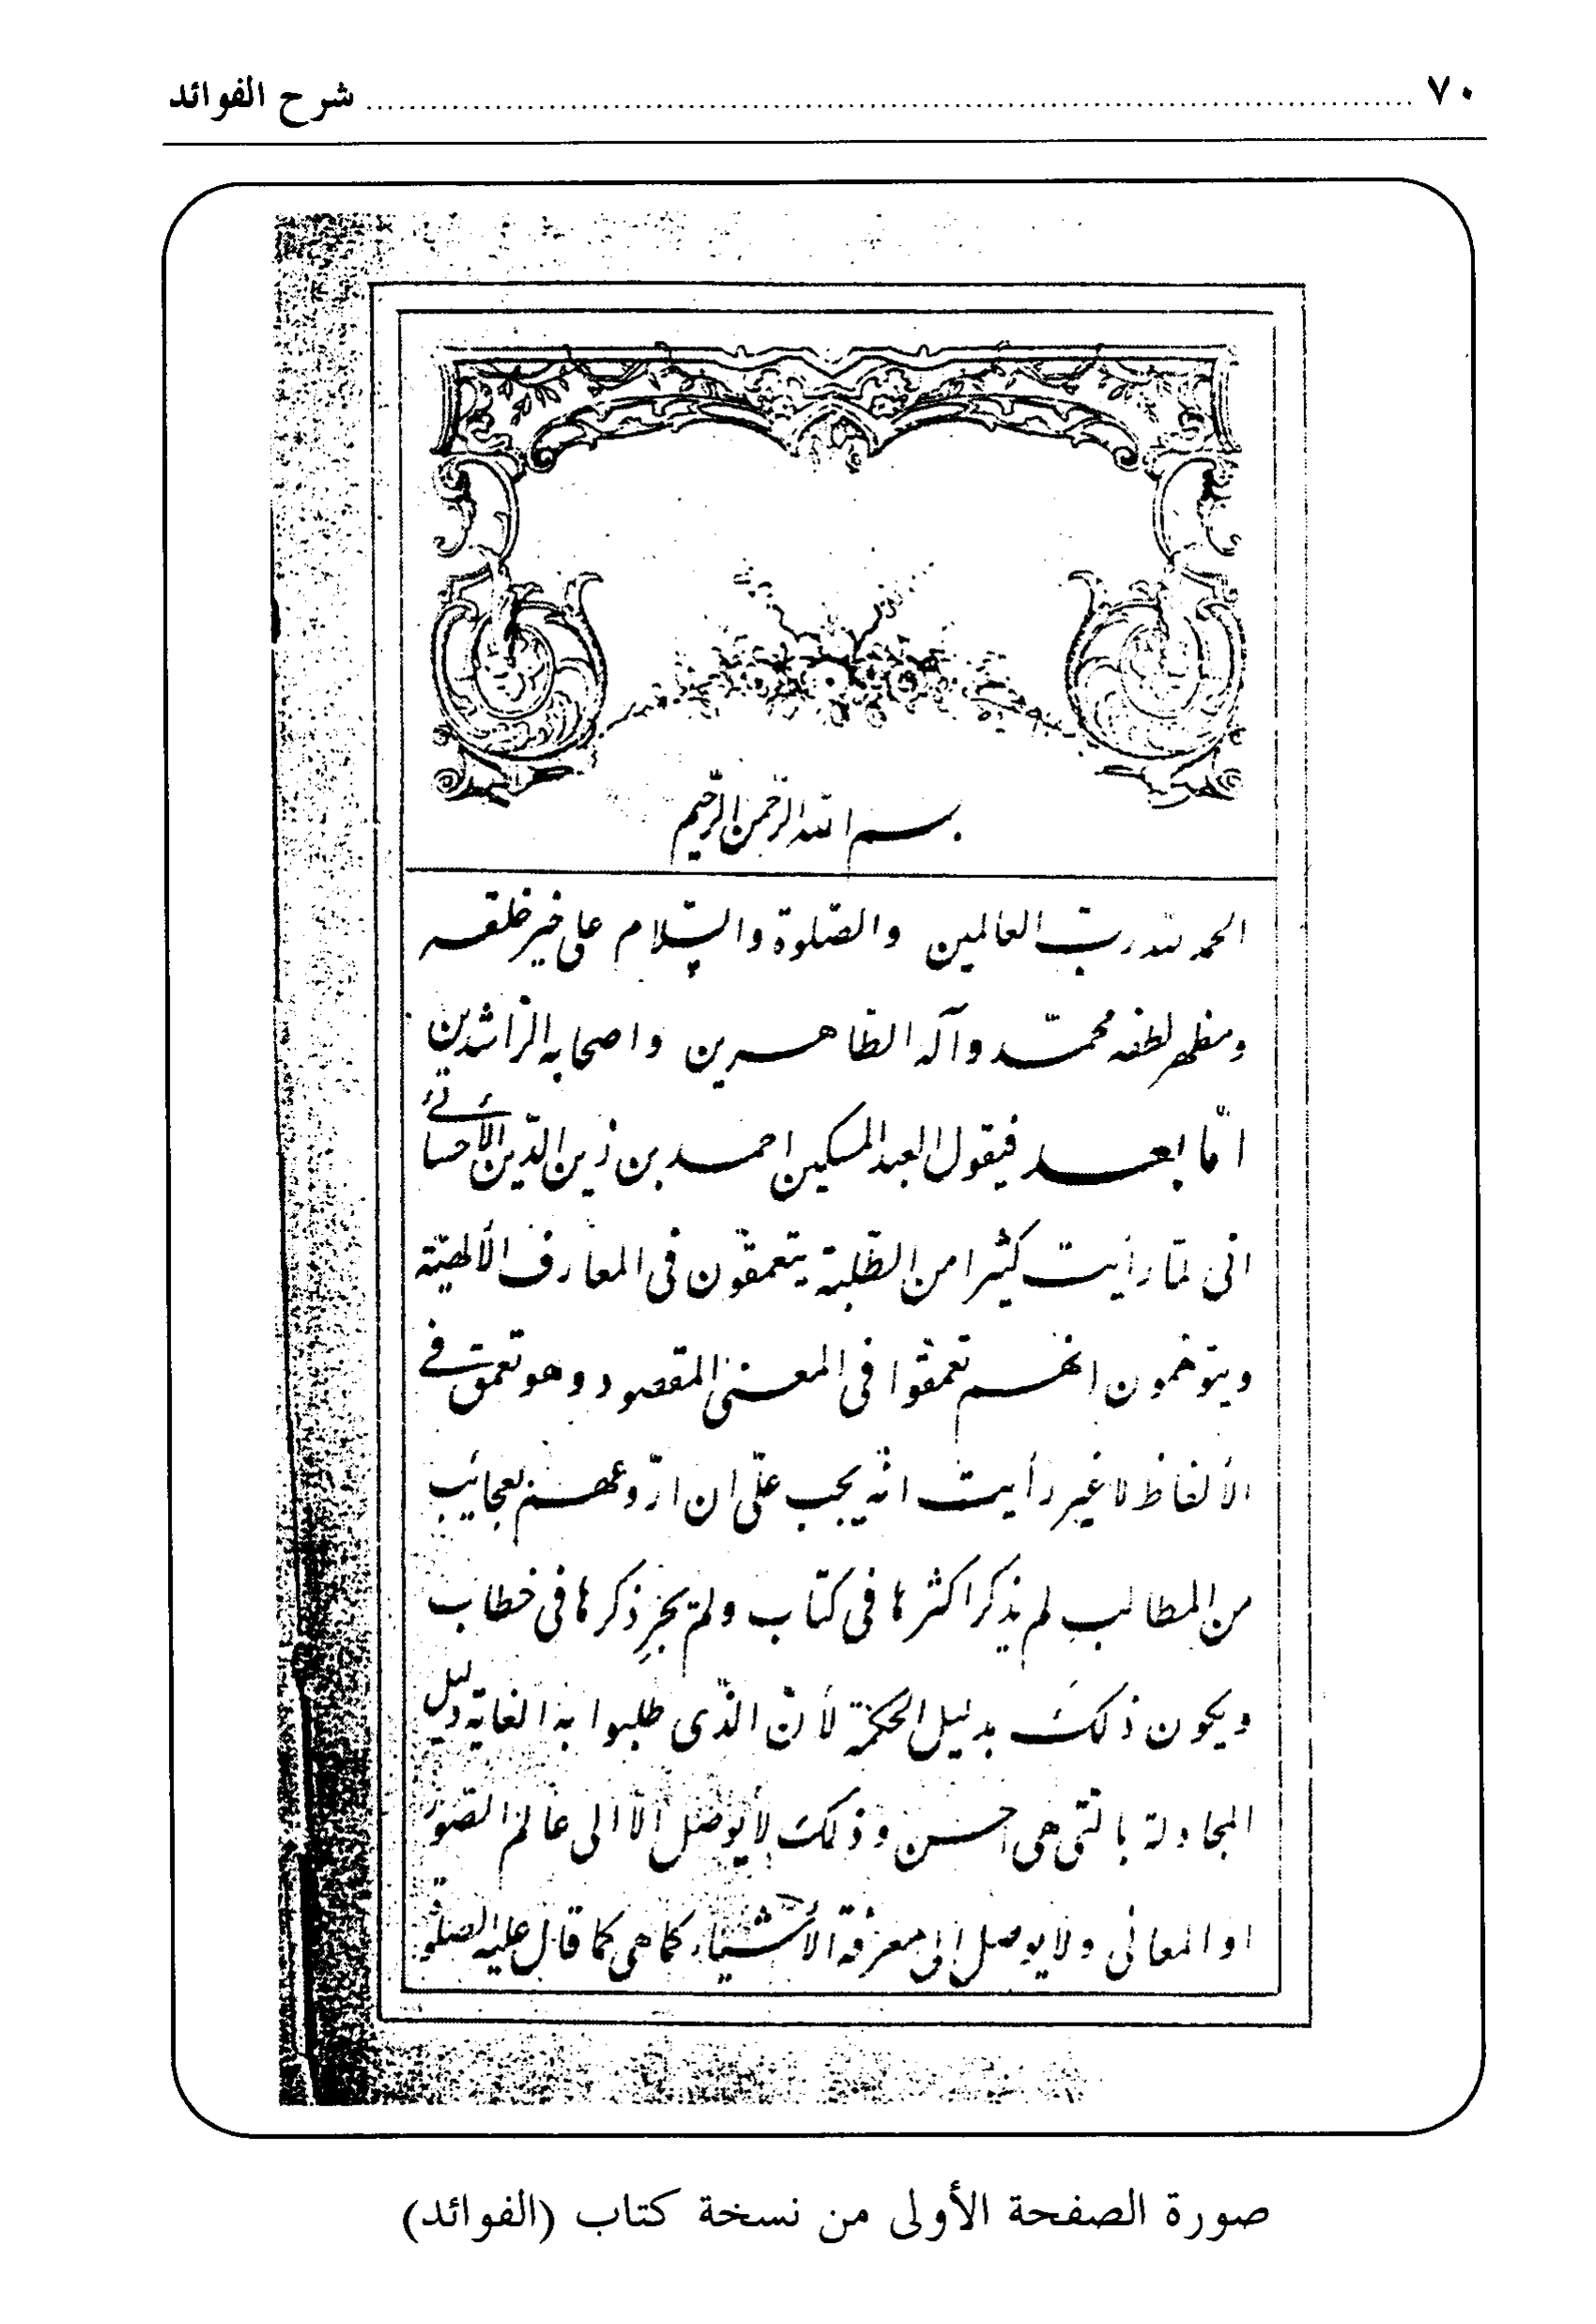 ٧٠ شرح الفوائد
بسم الله الرحمن الرحيم
الحمد لله رب العالمين والصّلوة والسّلام على خير خلقه
ومظهر لطفه محمّد وآله الطّاهرين واصحابه الرّاشدين
امّا بعد فيقول العبد المسكين احمد بن زين الدّين الأحسائي
انى لمّا رأيت كثيرا من الطّلبة يتعمقون فى المعارف الألهيّة
ويتوهّمون انّهم تعمّقوا فى المعنى المقصود وهو تعمق فى
الألفاظ لا غير رأيت انّه يجب علىّ ان اروّعهم بعجائب
من المطالب لم يذكر اكثرها فى كتاب ولم يجرِ ذكرها فى خطاب
ويكون ذلك بدليل الحكمة لأنّ الذّى طلبوا به الغاية دليل
المجادلة بالتى هى احسن وذلك لا يوصل الّا الى عالم الصّور
او المعانى ولا يوصل الى معرفة الأشياء كما هى كما قال عليه الصلو
صورة الصفحة الأولى من نسخة كتاب (الفوائد)